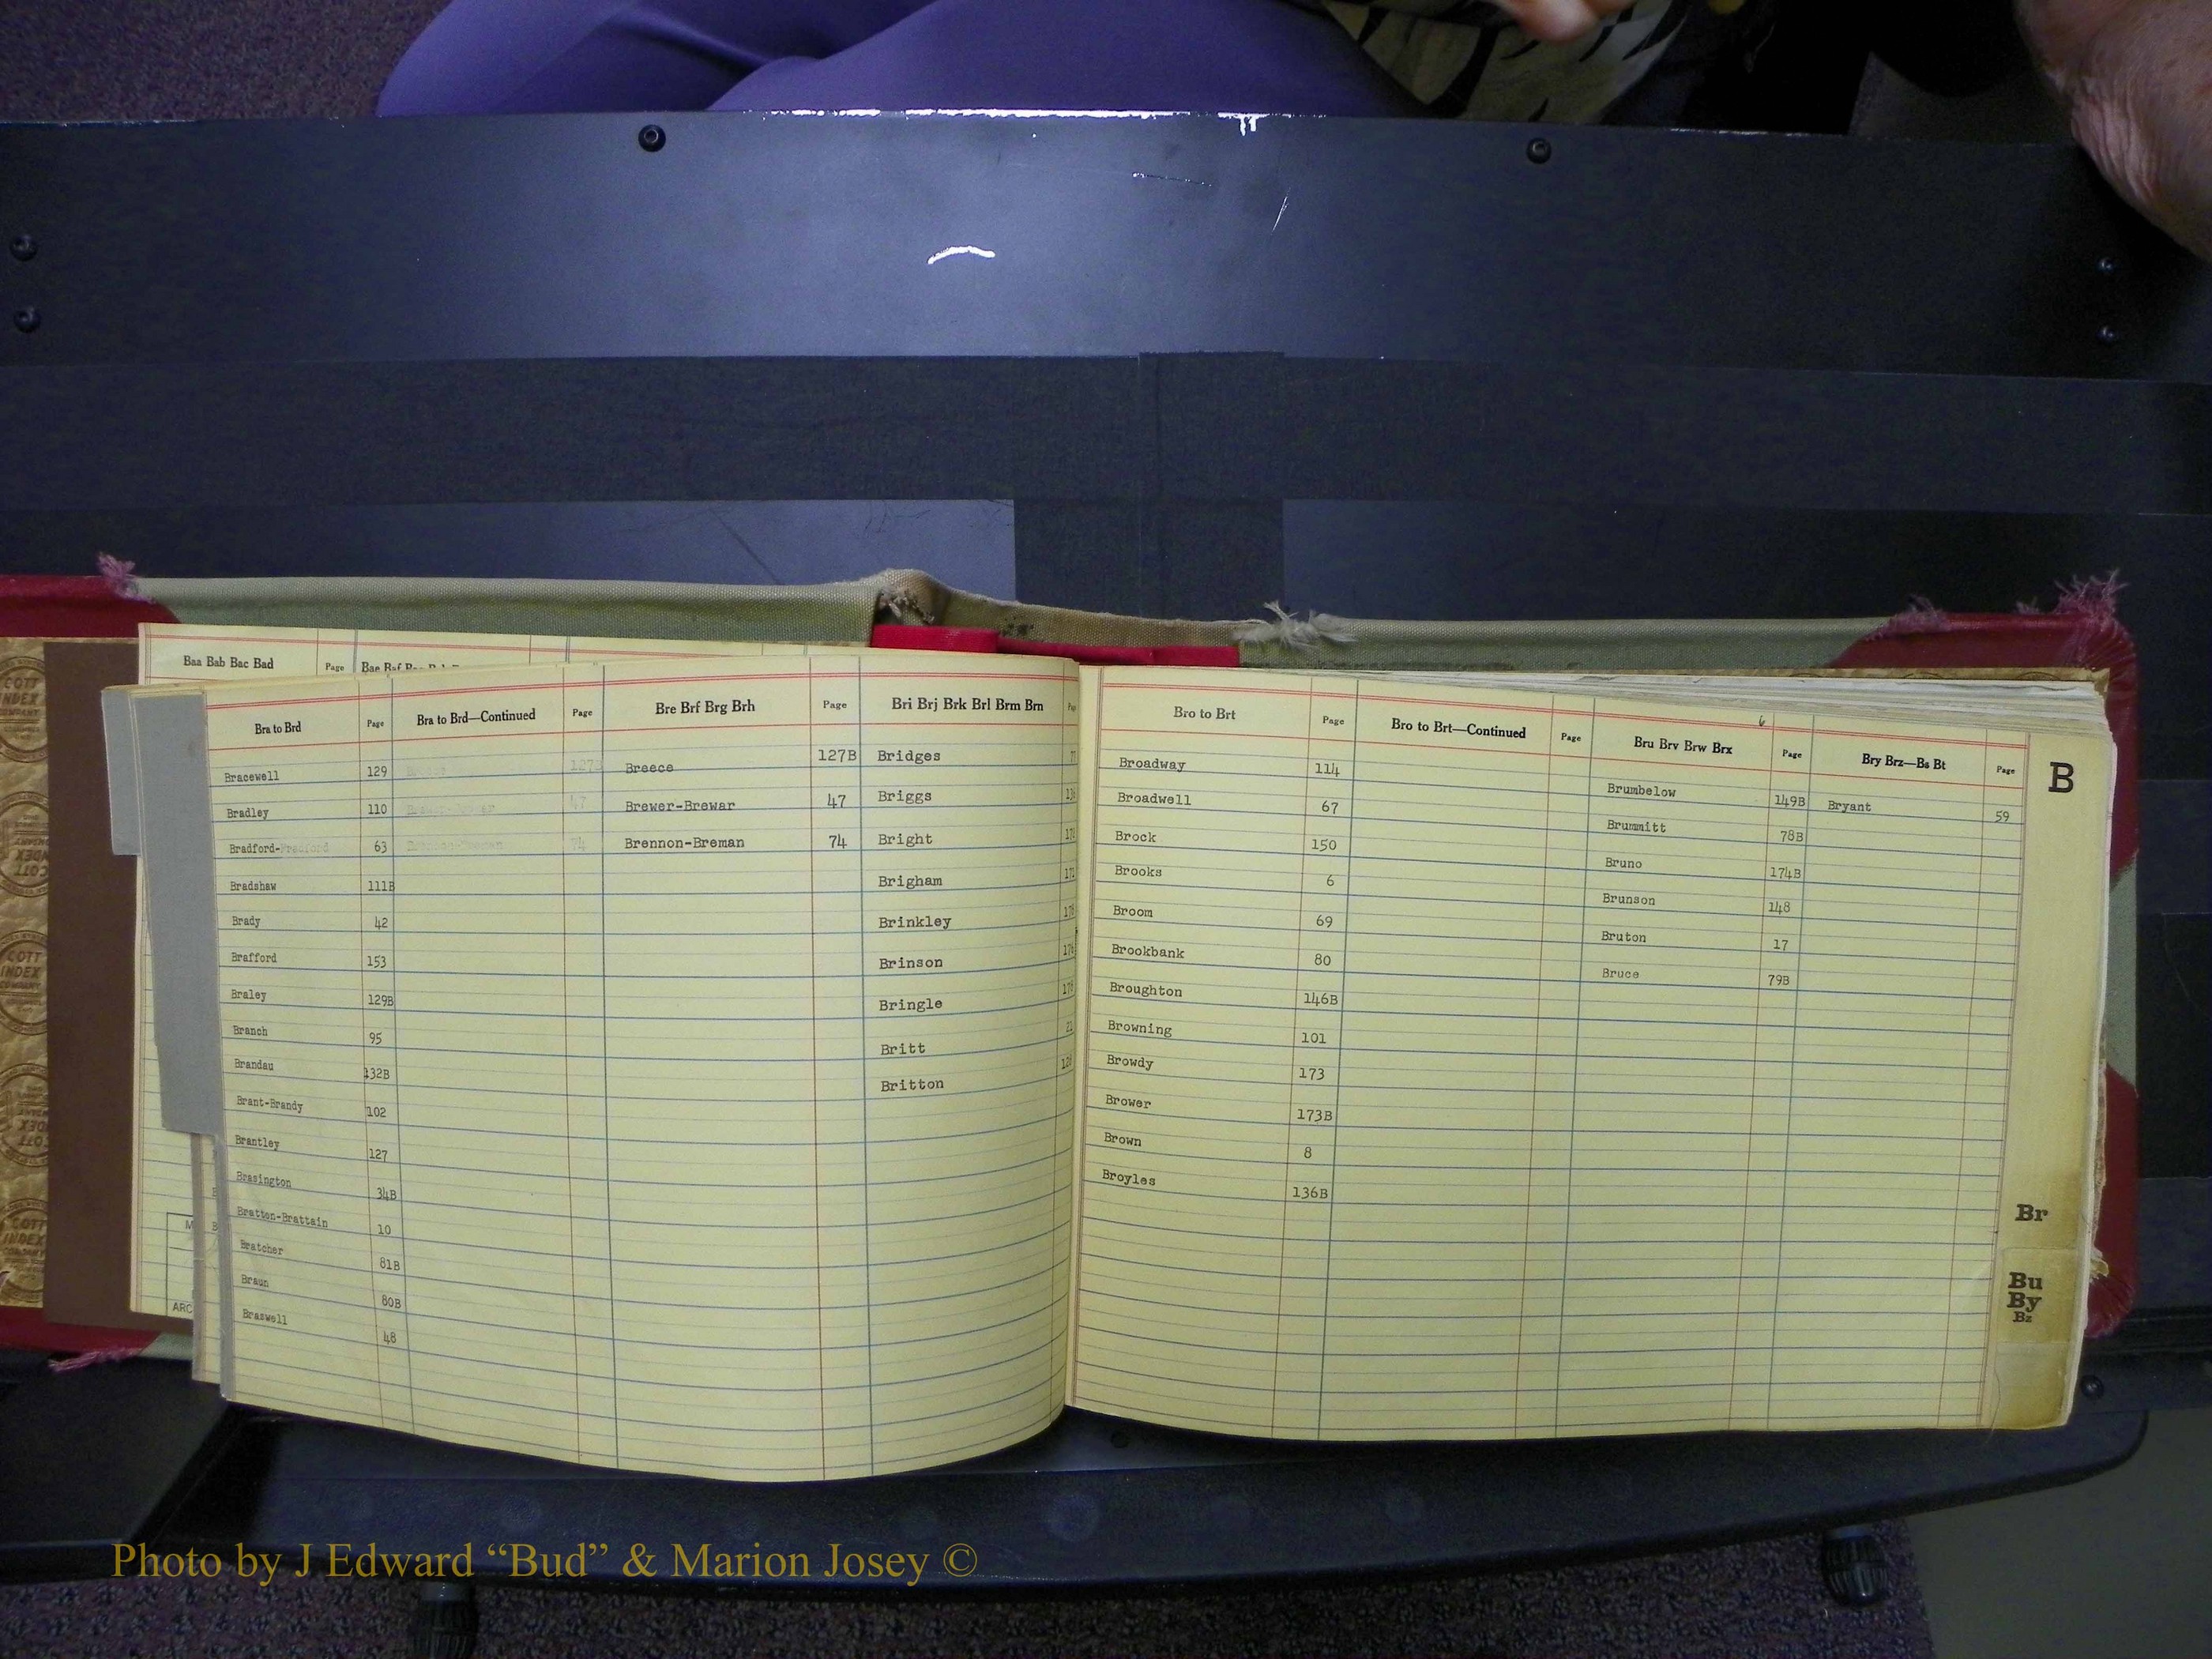 Baa Bab Bac Bad Page
Bra to Brd Page
Bracewell 129
Bradley 110
Bradford- 63
Bradshaw 111B
Brady 42
Brafford 153
Braley 129B
Branch 95
Brandau 132B
Brant-Brandy 102
Brantley 127
Brasington 34B
Bratton-Brattain 10
Bratcher 81B
Braun 80B
Braswell 48
Bra to Brd—Continued Page
Bre Brf Brg Brh Page
Breece 127B
Brewer-Brewar 47
Brennon-Breman 74
Bri Brj Brk Brl Brm Brn
Bridges
Briggs
Bright
Brigham
Brinkley
Brinson
Bringle
Britt
Britton
Bro to Brt Page
Broadway 114
Broadwell 67
Brock 150
Brooks 6
Broom 69
Brookbank 80
Broughton 146B
Browning 101
Browdy 173
Brower 173B
Brown 8
Broyles 136B
Bro to Brt—Continued Page
6
Bru Brv Brw Brx Page
Brumbelow 149B
Brummitt 78B
Bruno 174B
Brunson 148
Bruton 17
Bruce 79B
Bry Brz—Bs Bt Page
Bryant 59
B
Br
Bu
By
Bz
COTT
INDEX
COMPANY
Photo by J Edward “Bud” & Marion Josey ©